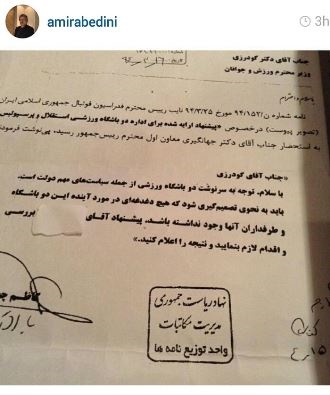 amirabedini
3h
جناب آقای دکتر گودرزی
وزیر محترم ورزش و جوانان
باسلام واحترام
نامه شماره ن/۹۴/۱۵۲ مورخ ۹۴/۳/۲۵ نایب رییس محترم فدراسیون فوتبال جمهوری اسلامی ایران
(تصویر پیوست) درخصوص «پیشنهاد ارایه شده برای اداره دو باشگاه ورزشی استقلال و پرسپولیس
به استحضار جناب آقای دکتر جهانگیری معاون اول محترم رییس‌جمهور رسید، پی‌نوشت فرمودند
«جناب آقای گودرزی
با سلام. توجه به سرنوشت دو باشگاه ورزشی از جمله سیاست‌های مهم دولت است.
باید به نحوی تصمیم‌گیری شود که هیچ دغدغه‌ای در مورد آینده این دو باشگاه
و طرفداران آنها وجود نداشته باشد. پیشنهاد آقای بررسی
و اقدام لازم بنمایید و نتیجه را اعلام کنید.»
نهاد ریاست جمهوری
مدیریت مکاتبات
واحد توزیع نامه ها